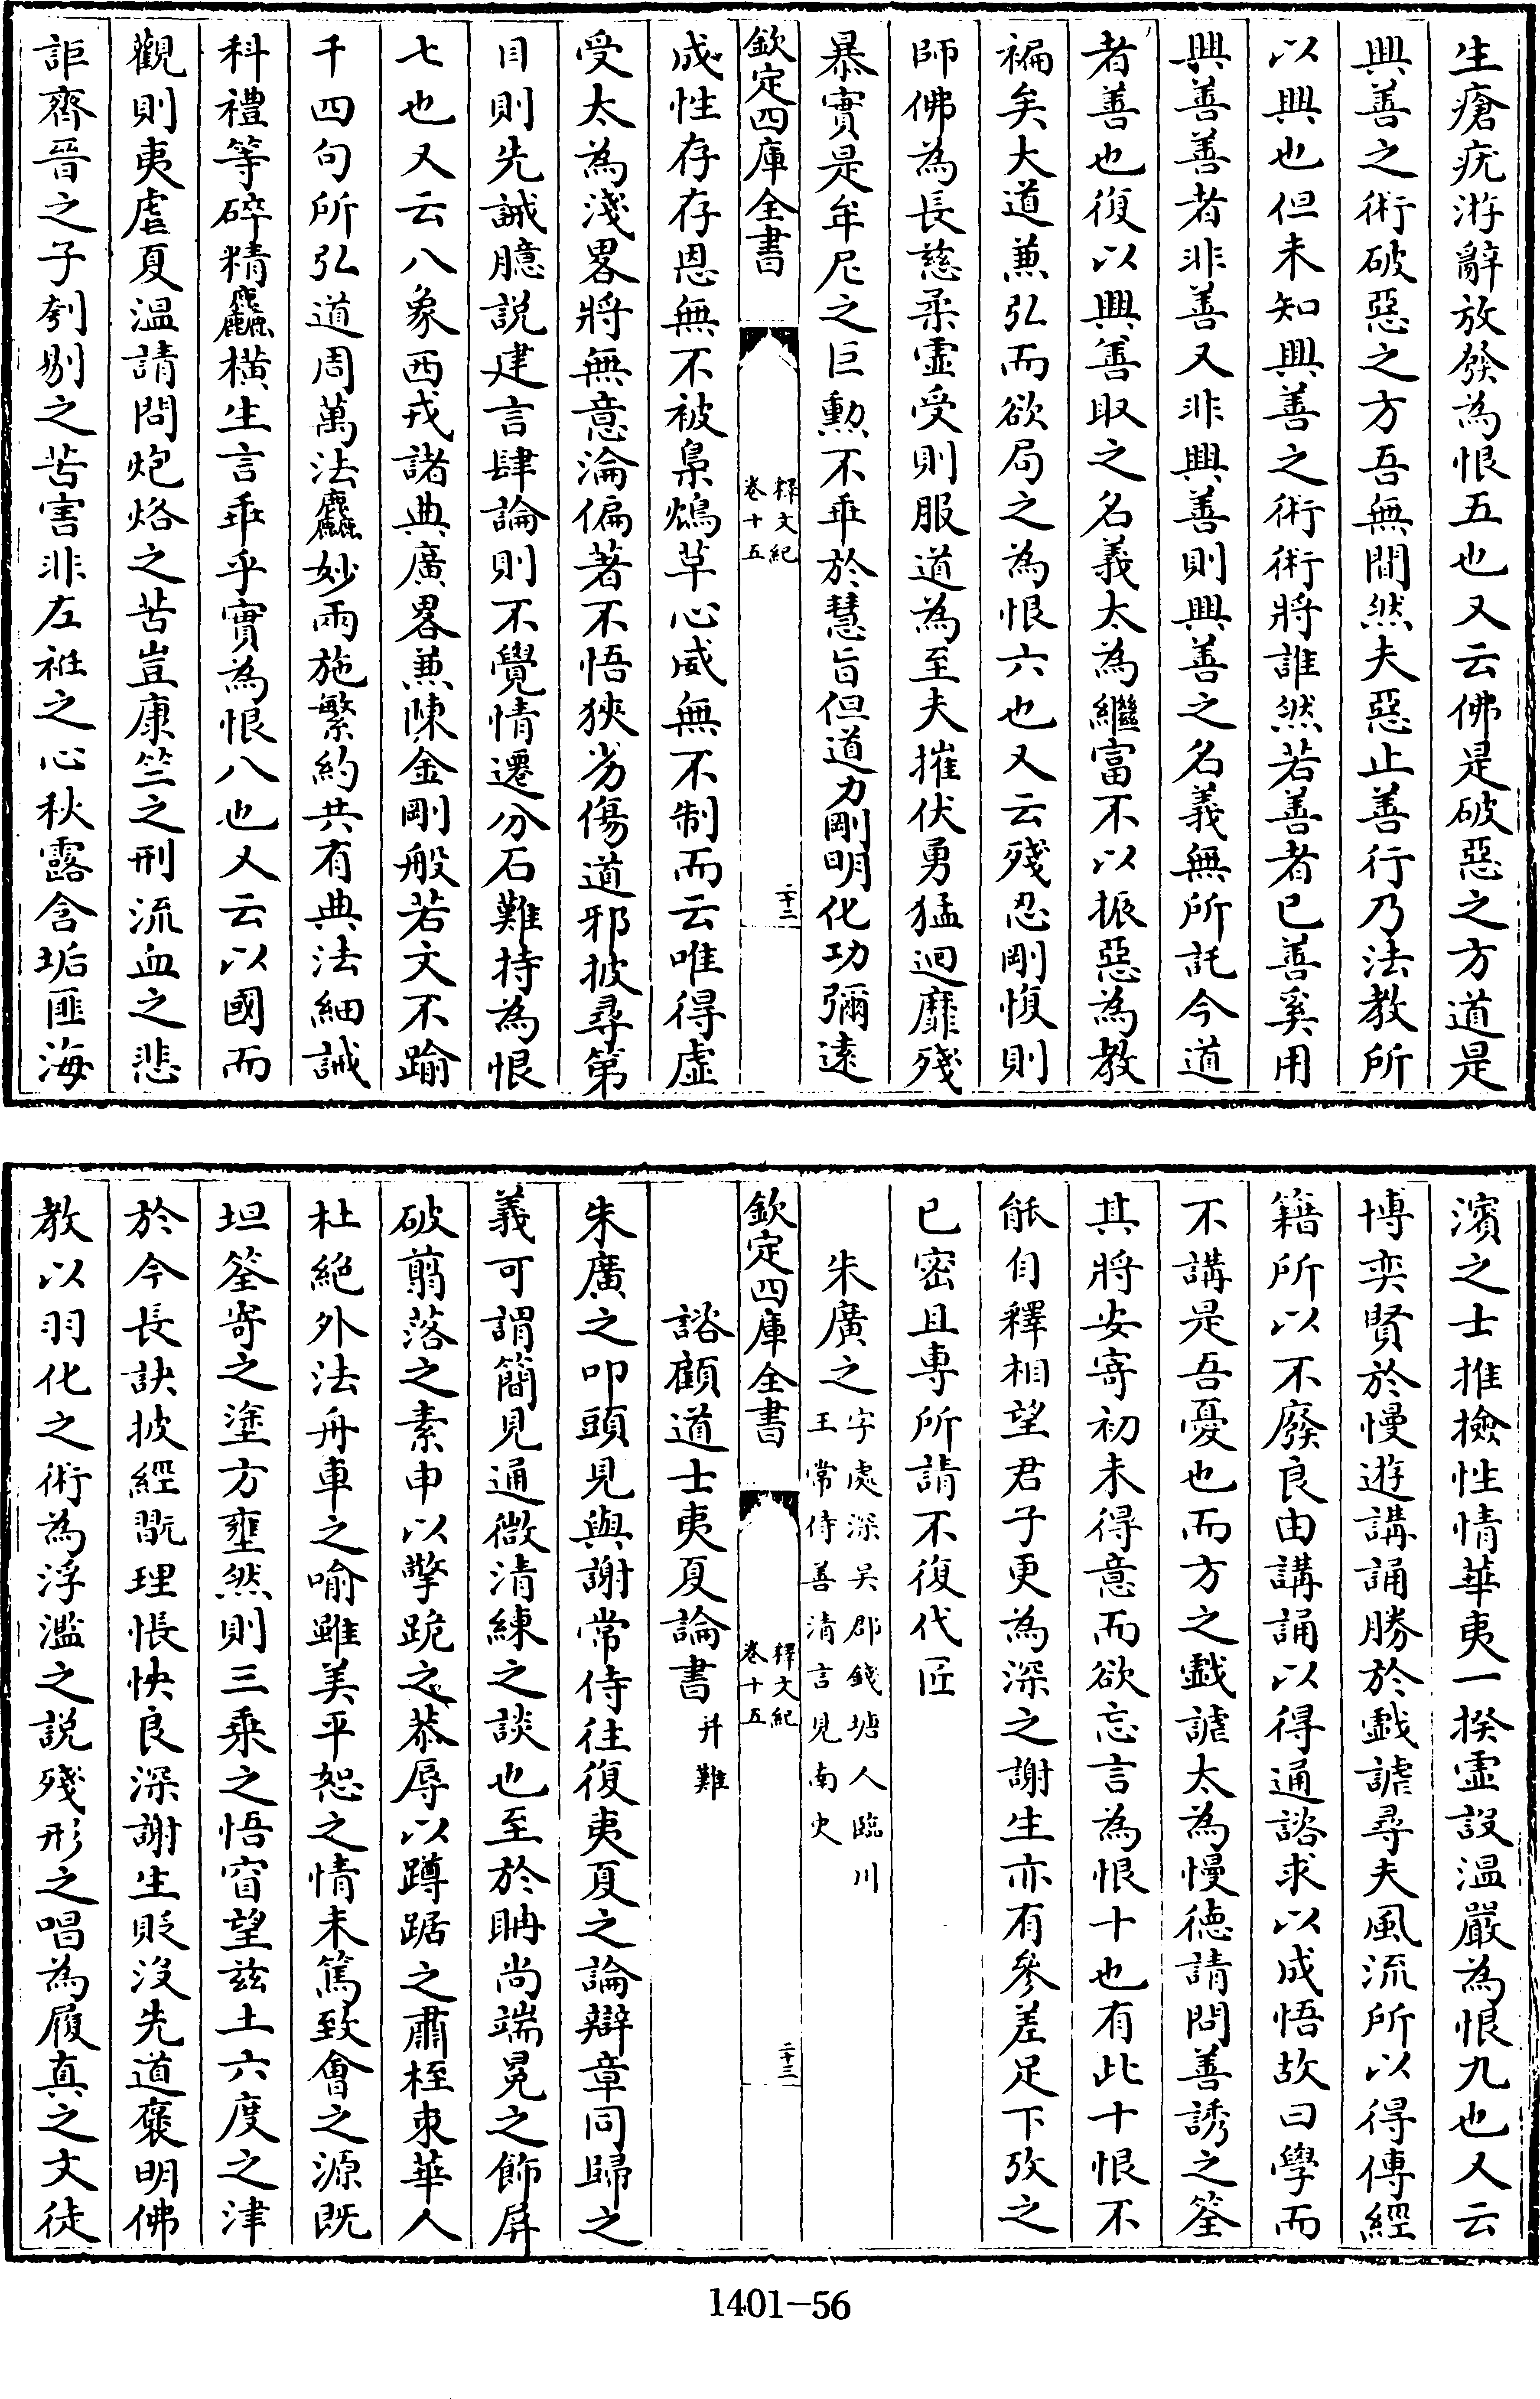 生瘡疣游辭放發為恨五也又云佛是破惡之方道是
興善之術破惡之方吾無間然夫惡止善行乃法教所
以興也但未知興善之術術將誰然若善者已善奚用
興善善者非善又非興善則興善之名義無所託今道
者善也復以興善取之名義太為繼富不以振惡為教
褊矣大道兼弘而欲局之為恨六也又云殘忍剛愎則
師佛為長慈柔虛受則服道為至夫摧伏勇猛迴靡殘
暴實是牟尼之巨勲不乖於慧旨但道力剛明化功彌遠
欽定四庫全書
釋文紀
卷十五
二十二
成性存存恩無不被梟鴆革心威無不制而云唯得虛
受太為淺畧將無意淪偏著不悟狹劣傷道邪披尋第
目則先誡臆説建言肆論則不覺情遷分石難持為恨
七也又云八象西戎諸典廣畧兼陳金剛般若文不踰
千四句所弘道周萬法麤妙兩施繁約共有典法細誡
科禮等碎精麤横生言乖乎實為恨八也又云以國而
觀則夷虐夏温請問炮烙之苦豈康竺之刑流血之悲
詎齊晉之子刳剔之苦害非左衽之心秋露含垢匪海
濱之士推撿性情華夷一揆虛設温嚴為恨九也又云
博奕賢於慢遊講誦勝於戲謔尋夫風流所以得傳經
籍所以不廢良由講誦以得通諮求以成悟故曰學而
不講是吾憂也而方之戲謔太為慢德請問善誘之筌
其將安寄初未得意而欲忘言為恨十也有此十恨不
能自釋相望君子更為深之謝生亦有參差足下攷之
已密且專所請不復代匠
朱廣之字處深吳郡錢塘人臨川
王常侍善清言見南史
欽定四庫全書
釋文紀
卷十五
二十三
諮顧道士夷夏論書并難
朱廣之叩頭見與謝常侍往復夷夏之論辯章同歸之
義可謂簡見通微清練之談也至於耼尚端冕之飾屏
破翦落之素申以擎跪之恭辱以蹲踞之肅桎束華人
杜絶外法舟車之喻雖美平恕之情未篤致會之源既
坦筌寄之塗方壅然則三乘之悟窅望兹土六度之津
於今長訣披經翫理悵怏良深謝生貶没先道褒明佛
教以羽化之術為浮濫之説殘形之唱為履真之文徒
1401-56